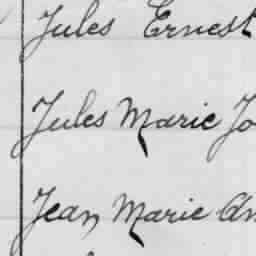 Jules Ernest
Jules Marie Jo
Jean Marie An